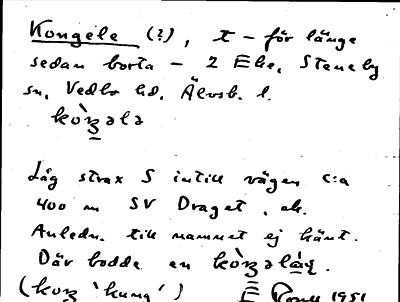 Kongele (?), t - för länge
sedan borta - 2 Eke, Steneby
sn, Vedbo hd, Älvsb. l.
Låg strax S intill vägen c:a
400 m SV Draget, ek.
Anledn. till namnet ej känt.
Där bodde en
( 'kung') 1951